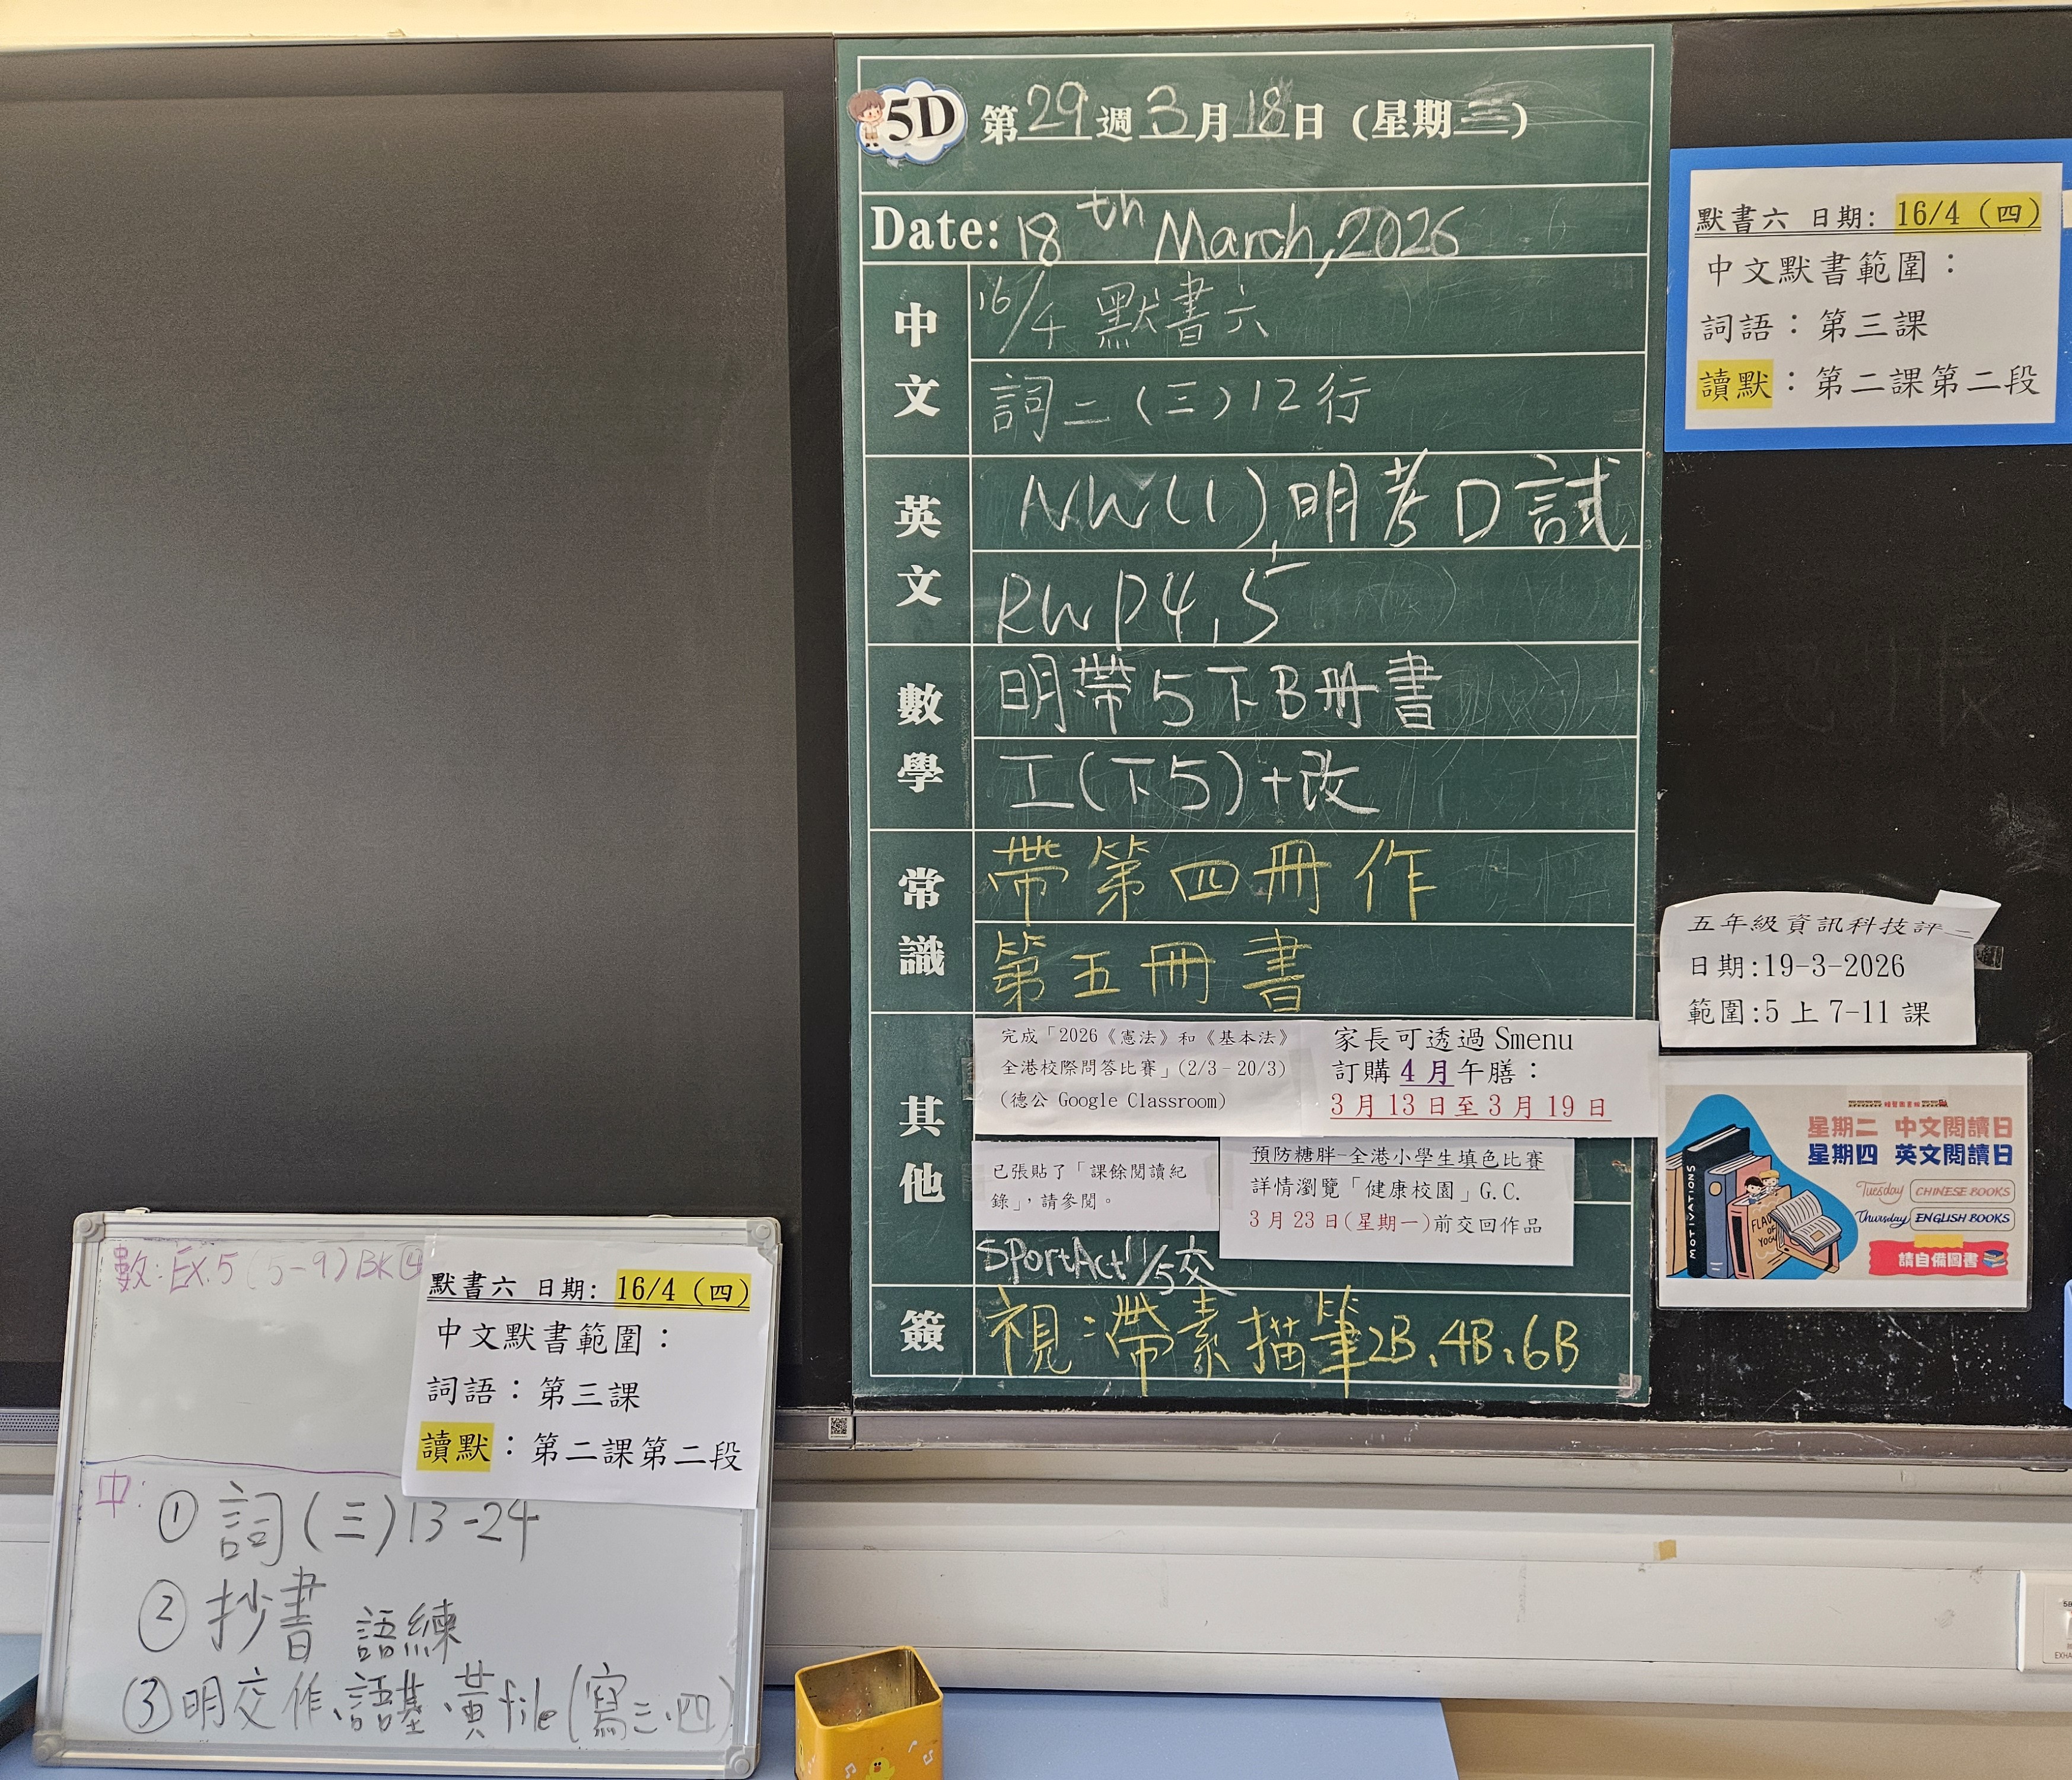 5D 第29週3月18日(星期三)
Date: 18th March, 2026
中文
16/4 默書六
詞二(三)12行
英文
NW(1),明考D試
RWP4,5
數學
明帶5下B冊書
工(下5)+改
常識
帶第四冊作
第五冊書
其他
完成「2026《憲法》和《基本法》
全港校際問答比賽」(2/3–20/3)
(德公 Google Classroom)
家長可透過 Smenu
訂購 4 月午膳:
3 月 13 日至 3 月 19 日
已張貼了「課餘閱讀紀
錄」,請參閱。
預防糖胖-全港小學生填色比賽
詳情瀏覽「健康校園」G.C.
3 月 23 日(星期一)前交回作品
SPortAct 11/5交
簽
視:帶素描筆2B、4B、6B
默書六 日期: 16/4 (四)
中文默書範圍:
詞語:第三課
讀默:第二課第二段
五年級資訊科技評
日期:19-3-2026
範圍:5 上 7-11 課
星期二 中文閱讀日
星期四 英文閱讀日
Tuesday CHINESE BOOKS
Thursday ENGLISH BOOKS
請自備圖書
MOTIVATIONS
數:EX.5 (5-9) BK④
默書六 日期: 16/4 (四)
中文默書範圍:
詞語:第三課
讀默:第二課第二段
中:
① 詞(三)13-24
② 抄書 語練
③ 明交作、語基、黃file(寫三、四)